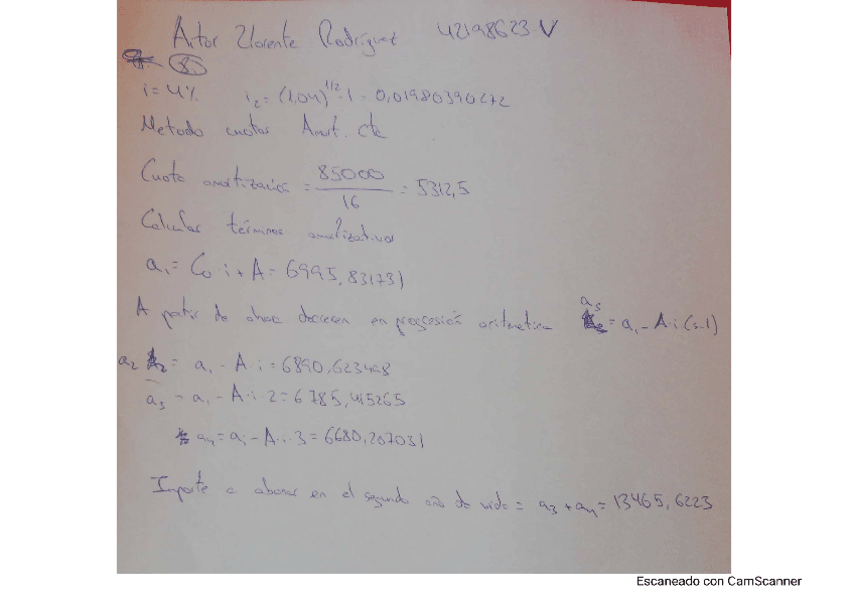 Aitor Llorente Rodríguez 42198623 V
85
i = 4% i₂ = (1,04)^1/2 - 1 = 0,01980390272
Metodo cuotas Amort. cte
Cuota amortización = 85000/16 = 5312,5
Calcular términos amortizativos
a₁ = C₀ · i + A = 6995,831731
A partir de ahora decrecen en progresión aritmetica aₛ = a₁ - A · i (s-1)
a₂ = a₁ - A · i = 6890,623498
a₃ = a₁ - A · i · 2 = 6785,415265
a₄ = a₁ - A · i · 3 = 6680,207031
Importe a abonar en el segundo año de vida = a₃ + a₄ = 13465,6223
Escaneado con CamScanner